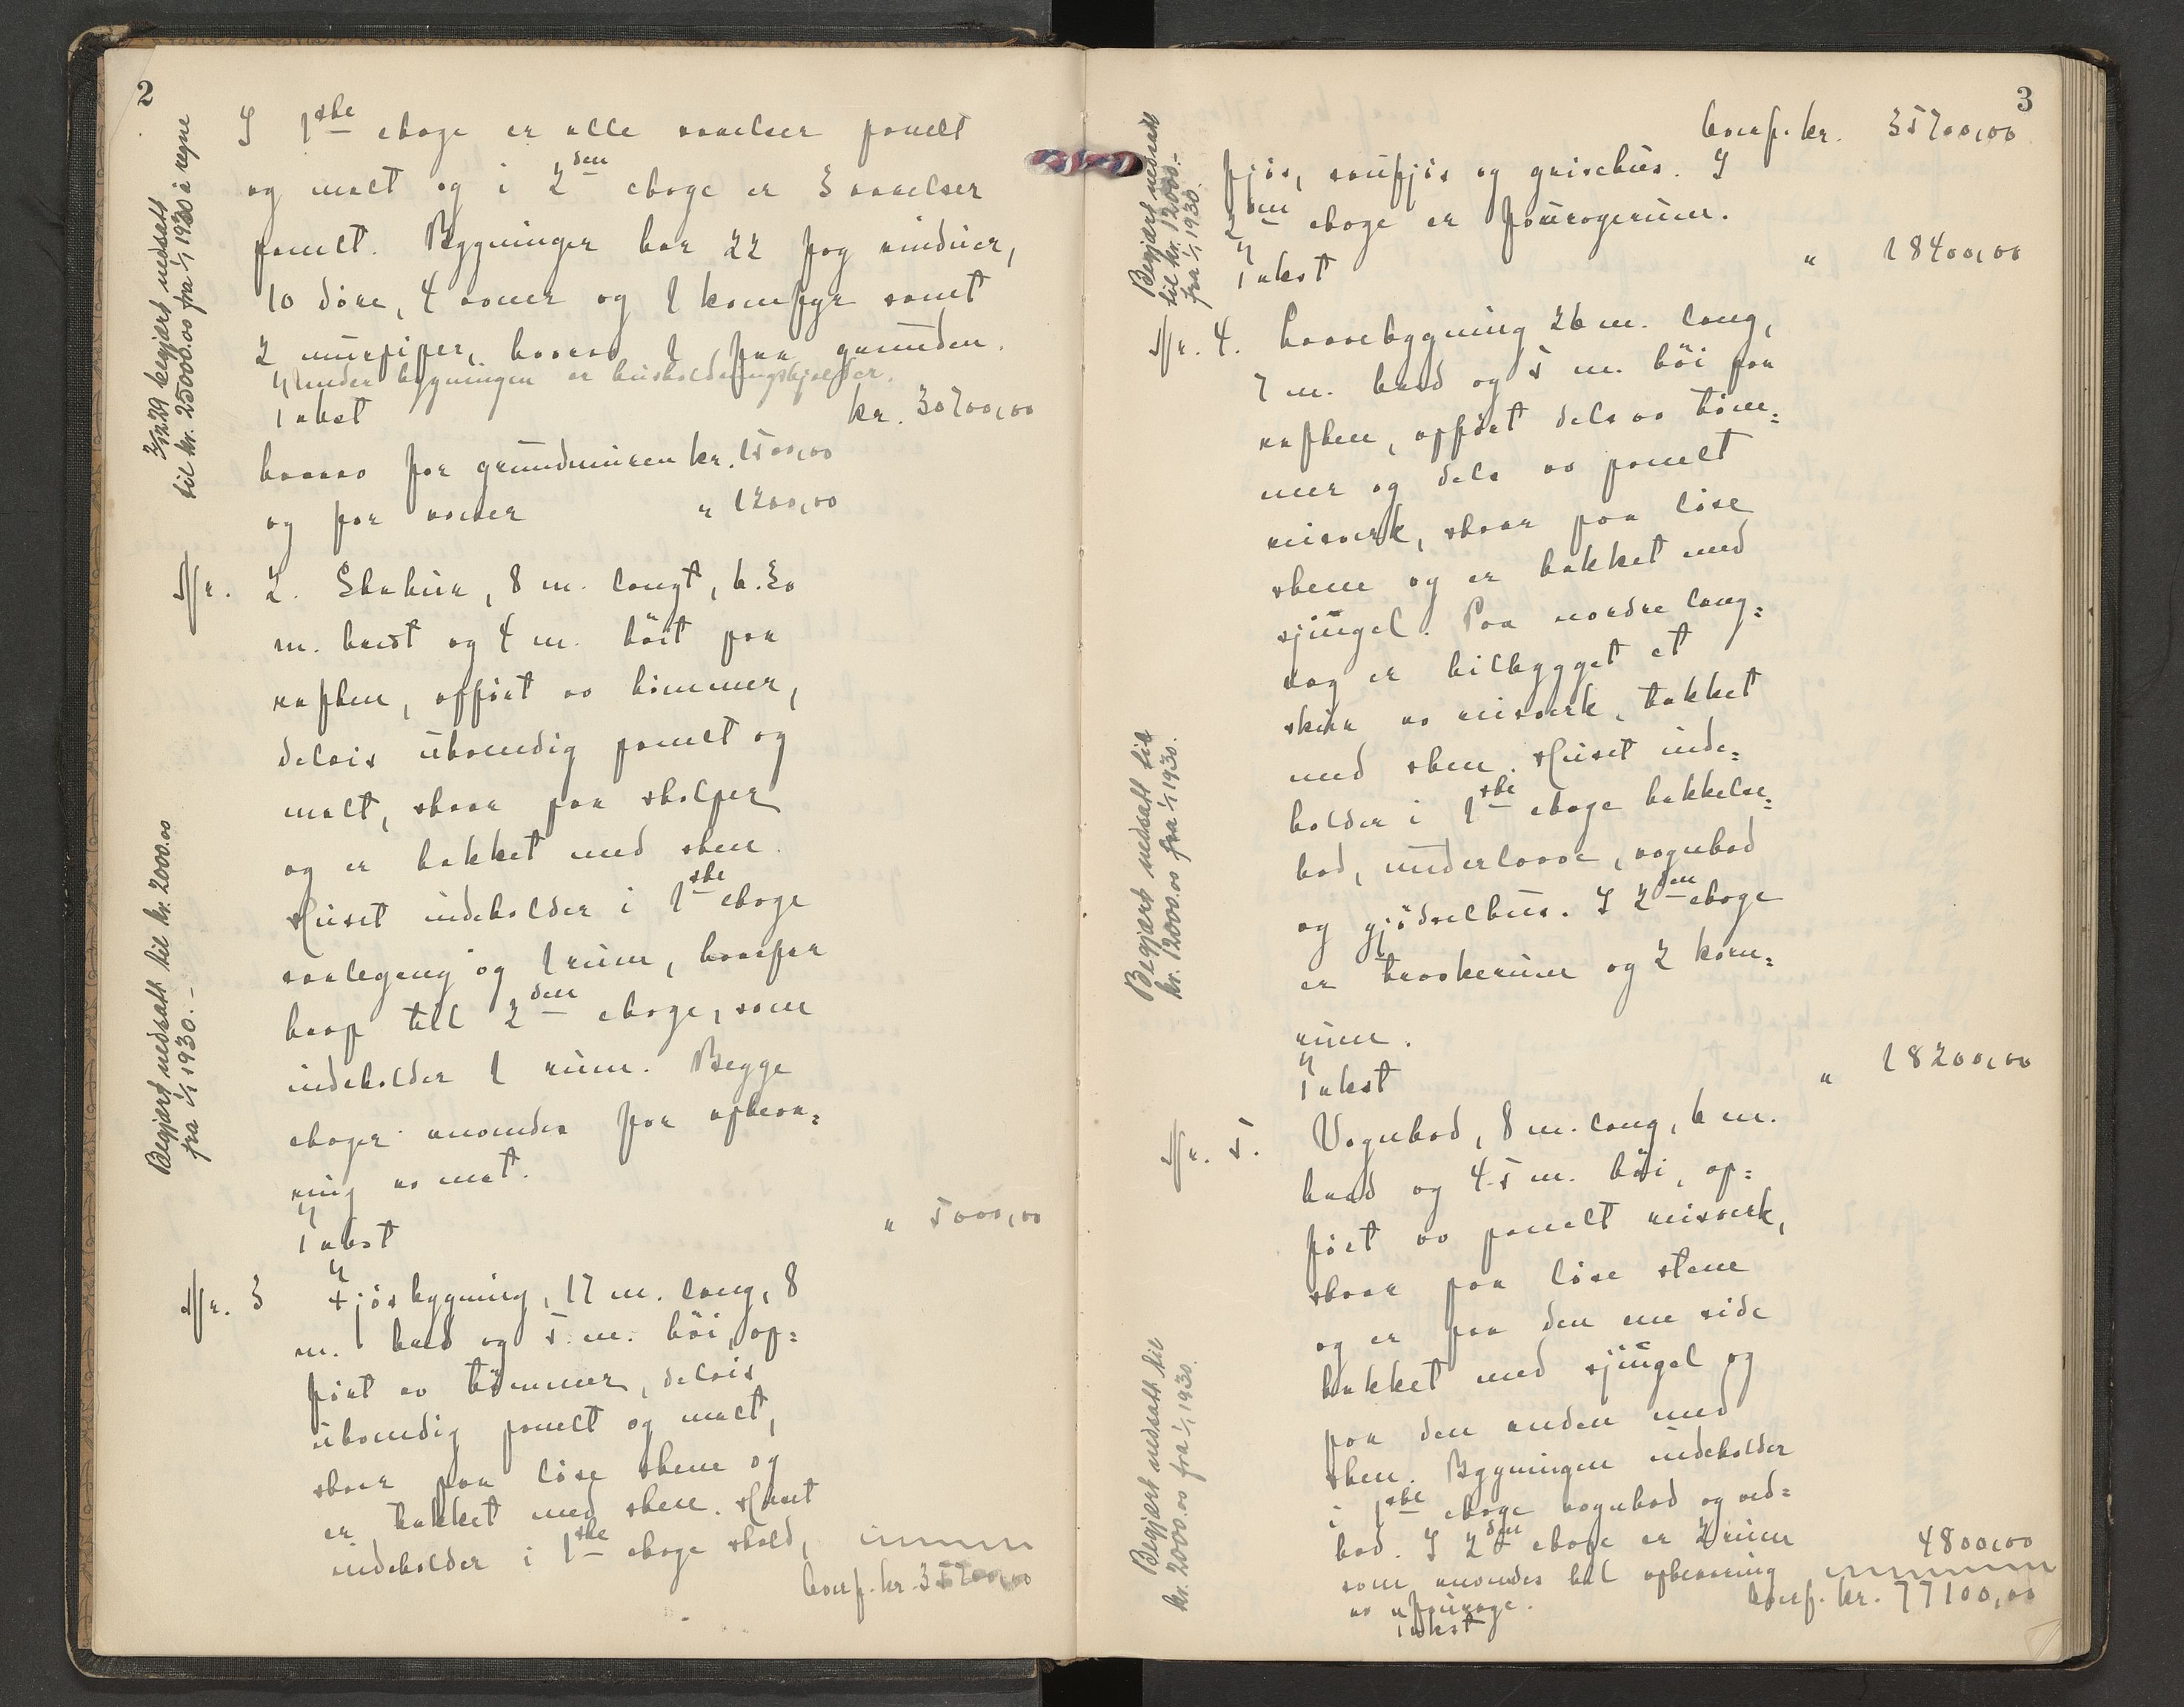 2
I 1ste etage er alle værelser panelt
og malt og i 2den etage er 3 værelser
panelt. Bygninger har 22 fag vinduer,
10 döre, 4 ovner og 1 komfyr samt
2 murpiper, hvorav 1 fra grunden.
Under bygningen er husholdningskjelder.
Takst kr. 30700,00
hvorav for grundmuren kr. 1500,00
og for ovner " 1200,00
3/12 29 begjært nedsatt
til kr. 25000.00 fra 1/1 1930 å regne
Nr. 2. Stabur, 8 m. langt, 6.30
m. bredt og 4 m. höit paa
raften, opfört av tömmer,
delvis utvendig panelt og
malt, staar paa stolper
og er tækket med sten.
Huset indeholder i 1ste etage
svalegang og 1 rum, hvorfra
trap till 2den etage, som
indeholder 1 rum. Begge
etager anvendes for opbeva=
ring av mat.
Takst " 5000,00
Begjært nedsatt til kr. 2000.00
fra 1/1 1930.-
Nr. 3 Fjösbygning, 17 m. lang, 8
m. bred og 5. m. höi, op=
fört av tömmer, delvis
utvendig panelt og malt,
staar paa löse stene og
er tækket med sten. Huset
indeholder i 1ste etage stald,
Overf. kr. 35700,00
3
Overf. kr. 35700,00
fjös, saufjös og grisehus. I
2den etage er fouragerum.
Takst " 18400,00
Begjært nedsatt
til kr. 12000.-
fra 1/1 1930.
Nr. 4. Laavebygning 26 m. lang,
7 m. bred og 5 m. höi paa
raften, opfört dels av töm=
mer og dels av panelt
reisverk, staar paa löse
stene og er tækket med
sjingel. Paa nordre lang=
væg er tilbygget et
skur av reisverk, tækket
med sten. Huset inde=
holder i 1ste etage hakkelse=
bod, underlaave, vognbod
og gjödselhus. I 2den etage
er træskerum og 2 korn=
rum.
Takst " 18200,00
Begjært nedsatt til
kr. 12000.00 fra 1/1 1930.
Nr. 5. Vognbod, 8 m. lang, 6 m.
bred og 4.5 m. höi, op=
fört av panelt reisverk,
staar paa löse stene
og er paa den ene side
tækket med sjingel og
paa den anden med
sten. Bygningen indeholder
i 1ste etage vognbod og ved=
bod. I 2den etage er 2 rum
som anvendes til opbevaring
av fourage.
Takst 4800,00
Overf. kr. 77100,00
Begjært nedsatt til
kr. 2000.00 fra 1/1 1930.